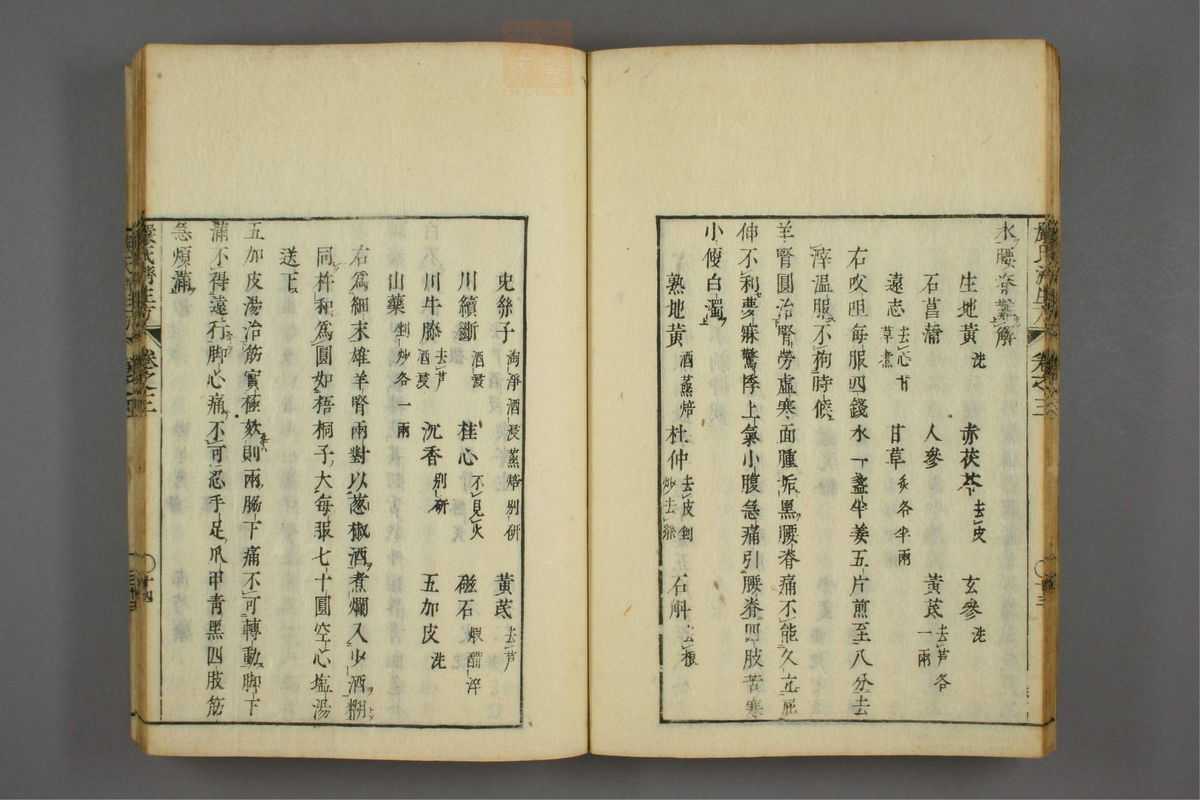 水腰脊難解
生地黃 洗 赤茯苓 去皮 玄參 洗
石菖蒲 人參 黃芪 去芦各一兩
遠志 去心甘草煮 甘草 炙各半兩
右㕮咀每服四錢水一盞半姜五片煎至八分去
滓温服不拘時候
羊腎圓治腎勞虛寒面腫垢黑腰脊痛不能久立屈
伸不利夢寐驚悸上氣小腹急痛引腰脊四肢苦寒
小便白濁
熟地黃 酒蒸焙 杜仲 去皮剉炒去絲 石斛 去根
嚴氏濟生方 卷之三 十三
兎絲子 淘淨酒浸蒸焙別研 黃芪 去芦
川續斷 酒浸 桂心 不見火 磁石 煆醋淬
川牛膝 去芦酒浸 沉香 別研 五加皮 洗
山藥 剉炒各一兩
右爲細末雄羊腎兩對以葱椒酒煮爛入少酒糊
同杵和爲圓如梧桐子大每服七十圓空心塩湯
送下
五加皮湯治筋實極欬則兩脇下痛不可轉動脚下
滿不得遠行脚心痛不可忍手足爪甲青黑四肢筋
急煩滿
嚴氏濟生方 卷之三 十四